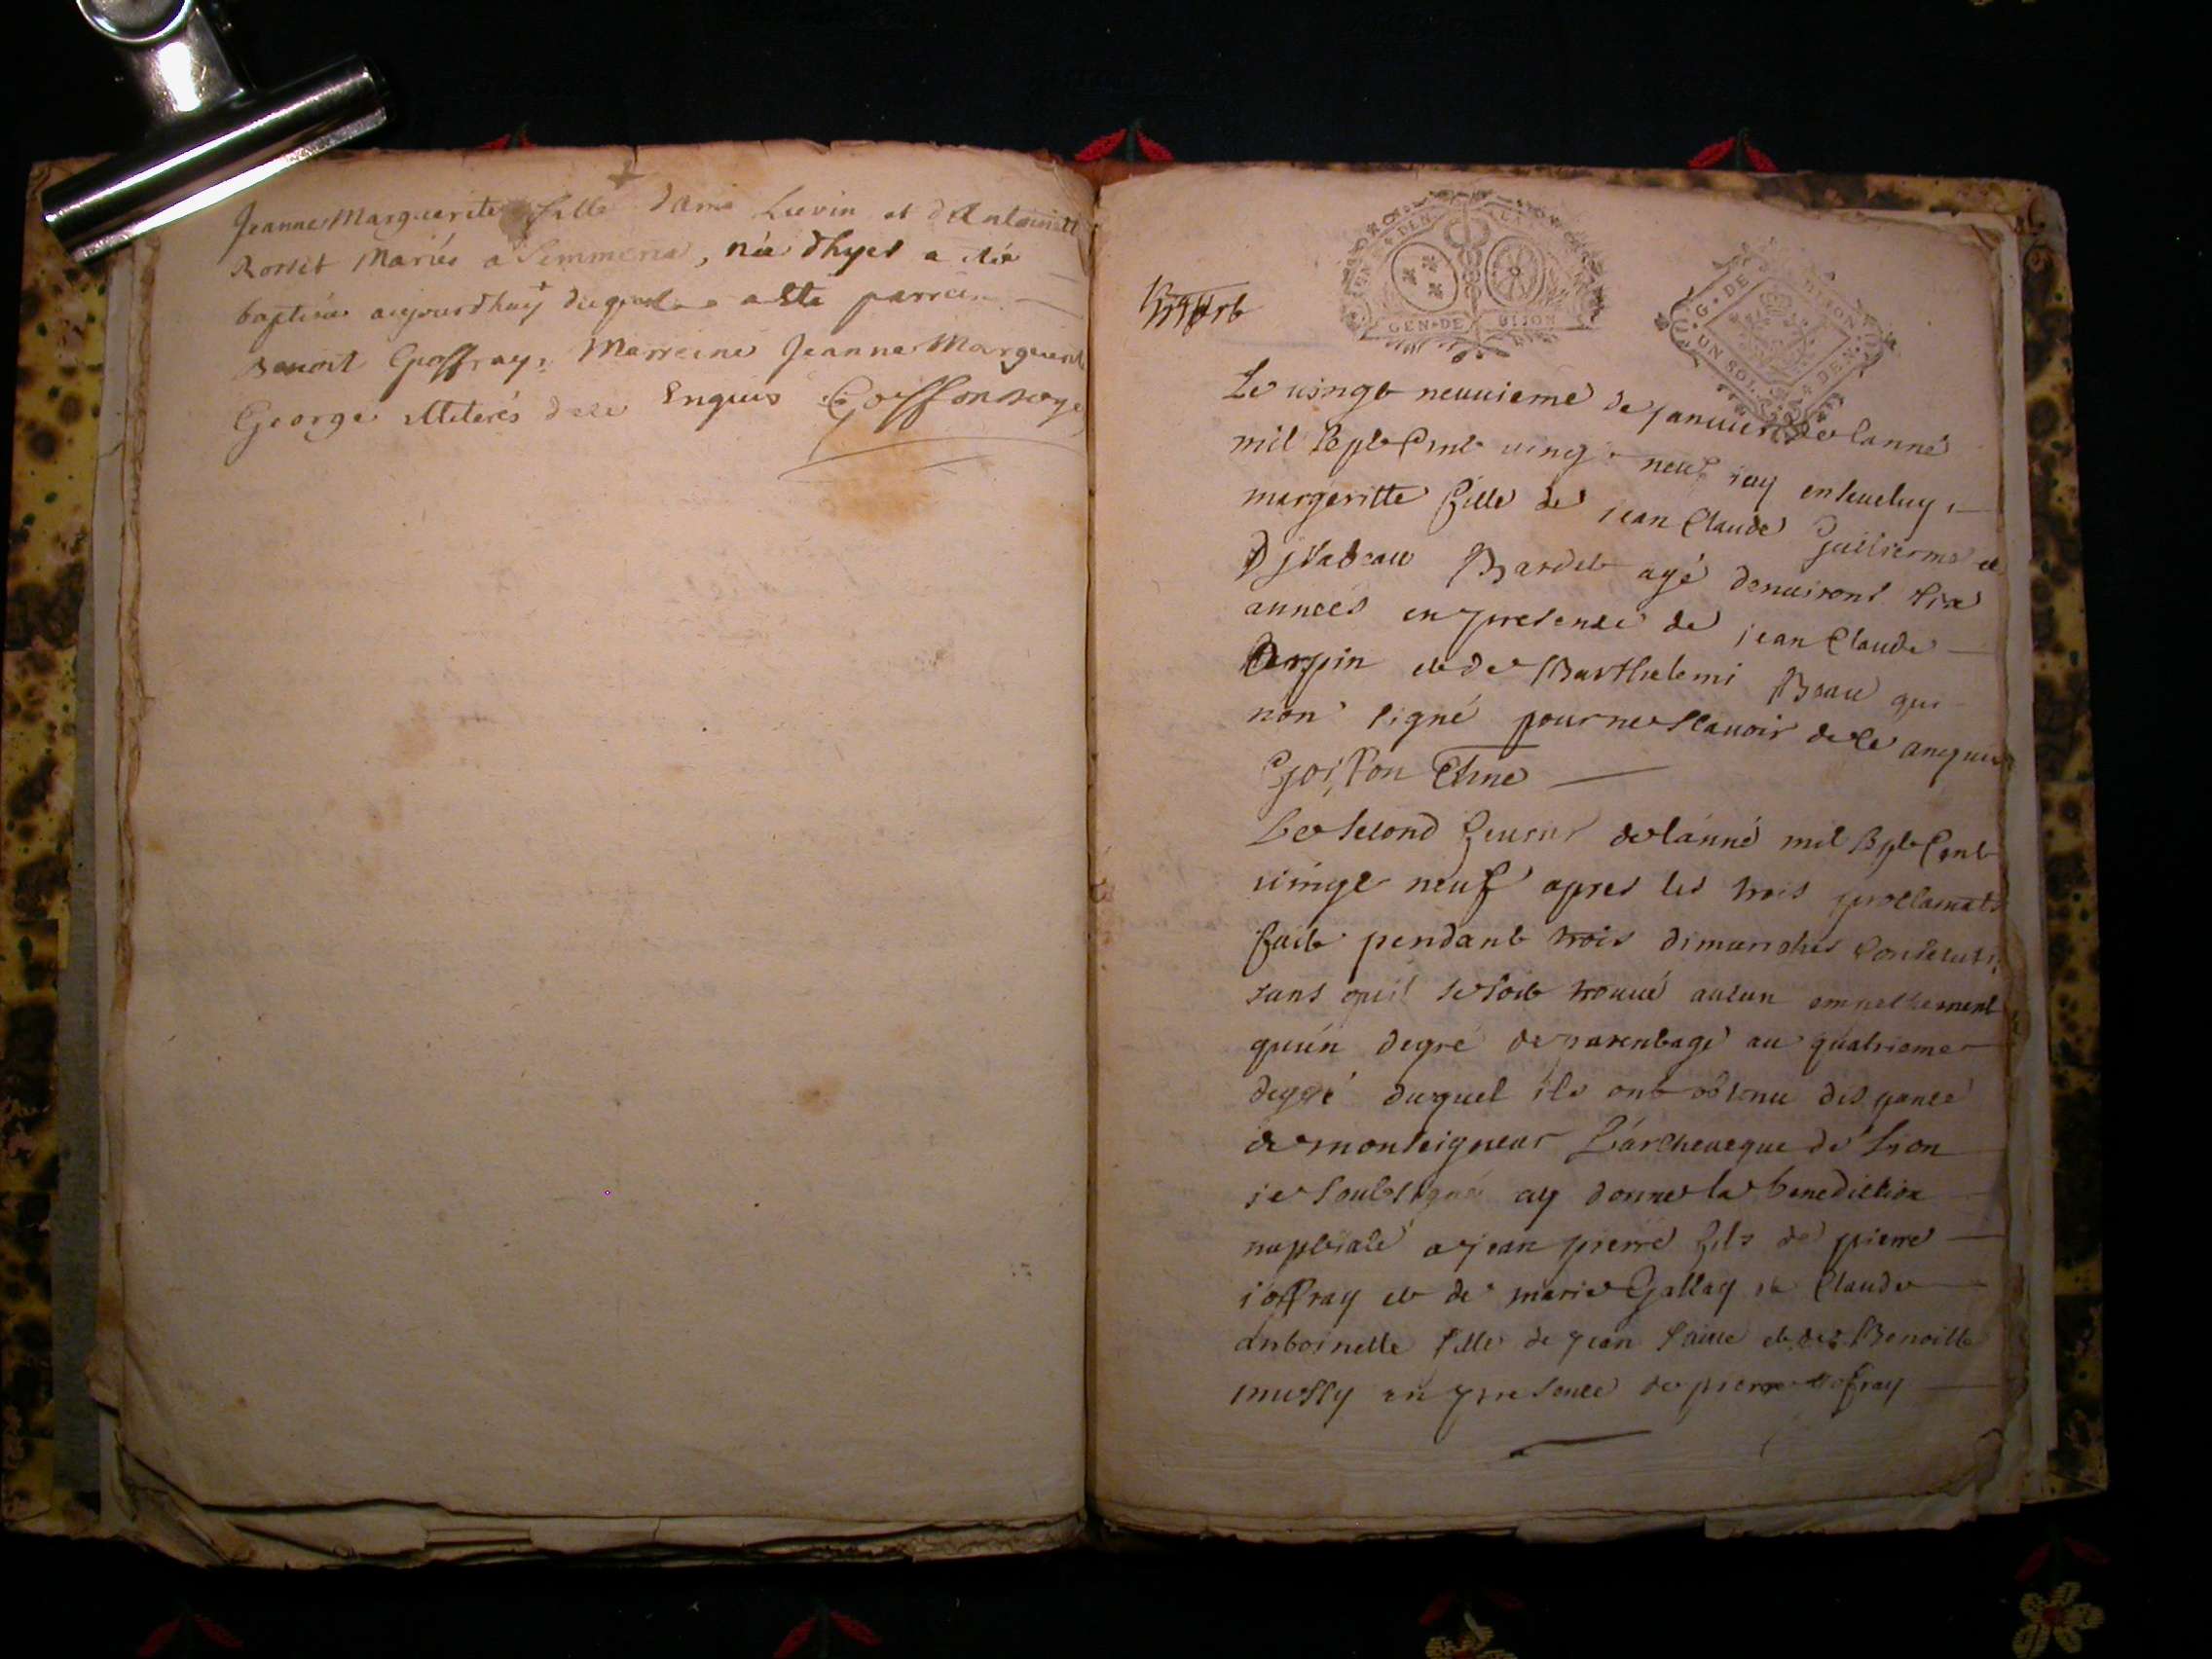 Jeanne Marguerite fille Lievin et d Antoinette
Rosset Mariés a Simmena, née dhyer a été
baptisée aujourdhuy a este parrein
Benoit Goffray, Marreine Jeanne Marguerite
George illiterés de ce Enquis
GEN DE DIJON
G. DE DIJON
UN SOL 4 DEN
Le vingt neuvieme de janvier de lanné
mil sept Cent vingt neuf iay ensevely
margeritte fille de jean Claude Guillerme et
Dysabeau Bardet agé denviront six
années en presence de jean Claude
et de Barthelemi Beau qui
non signé pour ne scavoir de ce anquis
Goiffon
Le second fevrier de lánné mil sept Cent
vingt neuf apres les trois proclamats
fait pendant trois dimanches Consecutif
sans quil se soit trouvé aucun empechement
quún degré de parentage au quatrieme
degré duquel ils ont obtenu dispance
de monseigneur Lárcheveque de Lion
je soubsigné ay donné la benediction
nuptiale a jean pierre fils de pierre
joffray et de marie Gallay et Claude
antoinette fille de jean et de Benoitte
mussy en presence de pierre